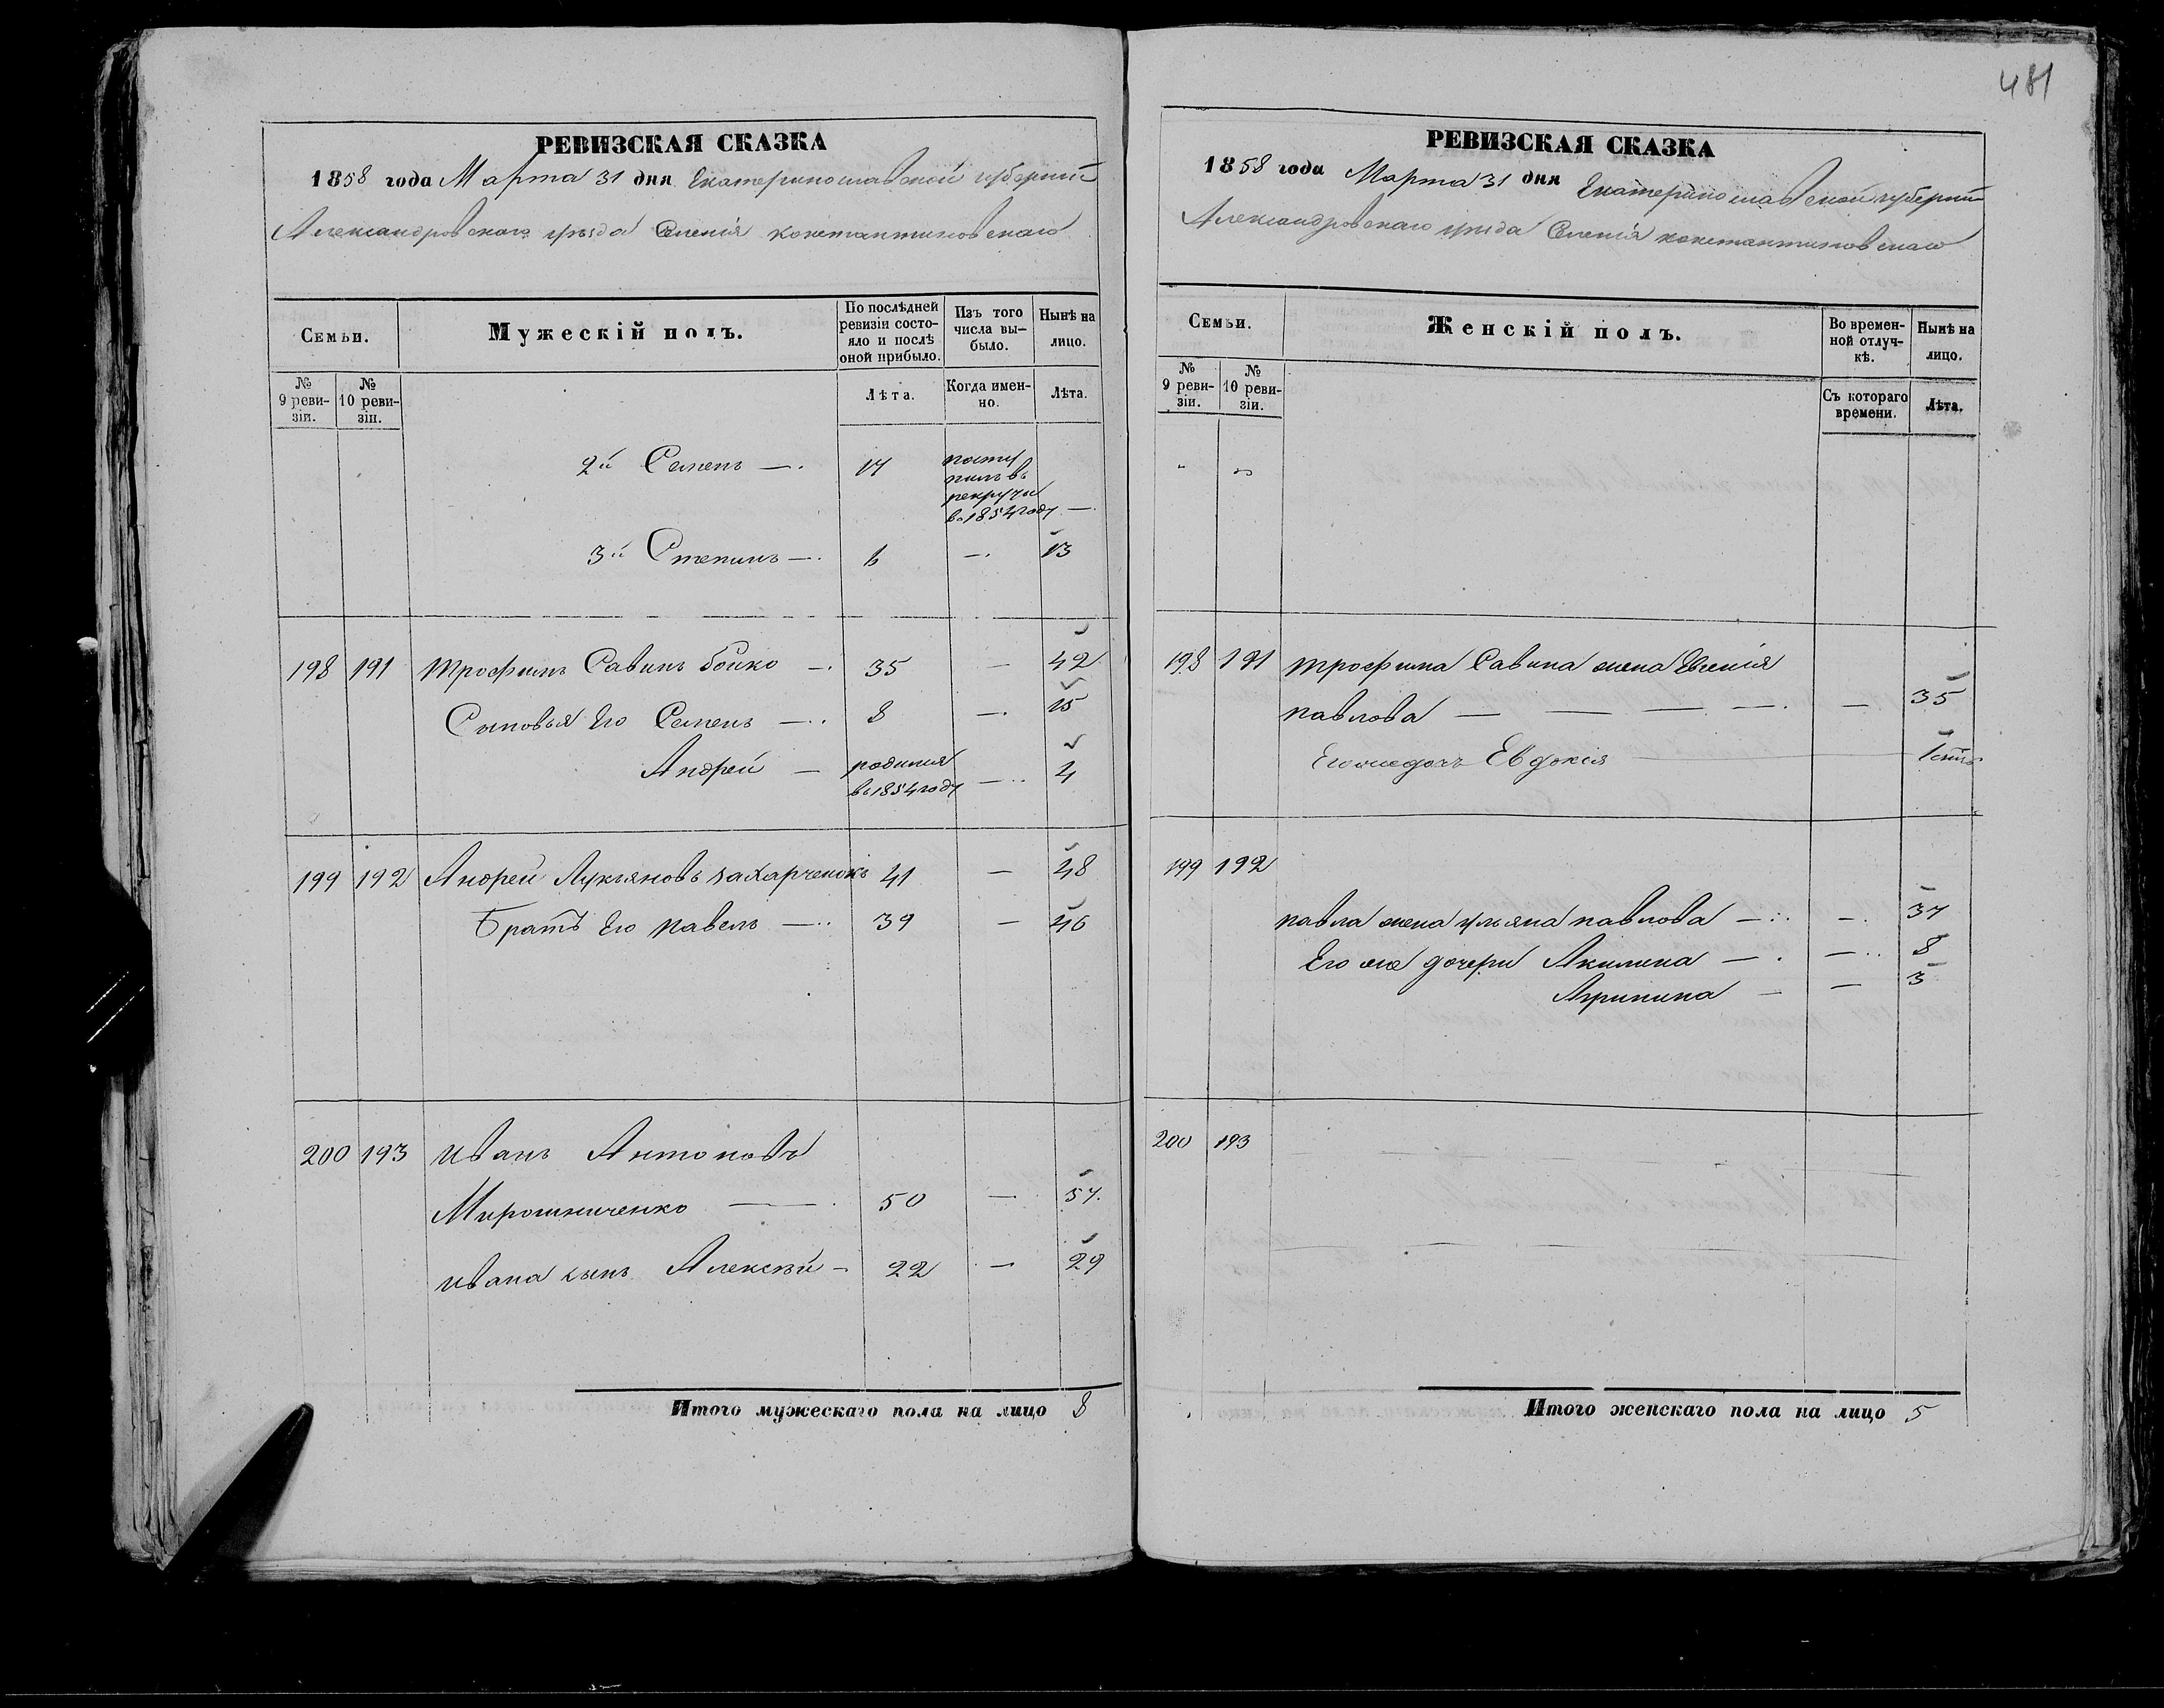 481
РЕВИЗСКАЯ СКАЗКА
1858 года Марта 31 дня Екатеринославской губерніи
Александровскаго уѣзда Селенія константиновскаго
Семьи.
Мужескій полъ.
По послѣдней ревизіи состояло и послѣ оной прибыло.
Изъ того числа выбыло.
Нынѣ на лицо.
№ 9 ревизіи.
№ 10 ревизіи.
Лѣта.
Когда именно.
Лѣта.
2й Семенъ — 17 посту
пилъ въ
рекруты
въ 1854 году —
3й Степанъ — 6 — 13
198 191 трофимъ Савинъ бойко — 35 — 42
Сыновья Его Семенъ — 8 — 15
Андрей — родился
въ 1854 году — 4
199 192 Андрей Лукьяновъ захарченокъ 41 — 48
Братъ Его павелъ — 39 — 46
200 193 иванъ Антоновъ
Мирошниченко — 50 — 57
ивана сынъ Алексѣй — 22 — 29
Итого мужескаго пола на лицо 8
РЕВИЗСКАЯ СКАЗКА
1858 года Марта 31 дня Екатеринославской губерніи
Александровскаго уѣзда Селенія константиновскаго
Семьи.
Женскій полъ.
Во временной отлучкѣ.
Нынѣ на лицо.
№ 9 ревизіи.
№ 10 ревизіи.
Съ котораго времени.
Лѣта.
198 191 трофима Савина жена
павлова — — — — — 35
Его же дочь Евдокія — 1
199 192
павла жена ульяна павлова — — 37
Его же дочери Акилина — — 8
Агрипина — — 3
200 193
Итого женскаго пола на лицо 5